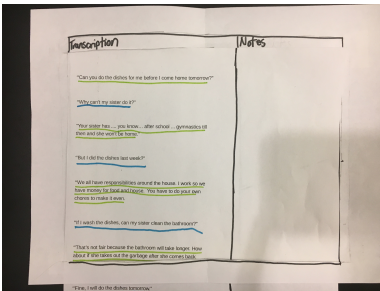 Transcription
Notes
"Can you do the dishes for me before I come home tomorrow?"
"Why can't my sister do it?"
"Your sister has… you know… after school … gymnastics till
then and she won't be home."
"But I did the dishes last week?"
"We all have responsibilities around the house. I work so we
have money for food and house. You have to do your own
chores to make it even.
"If I wash the dishes, can my sister clean the bathroom?"
"That's not fair because the bathroom will take longer. How
about if she takes out the garbage after she comes back
"Fine, I will do the dishes tomorrow."